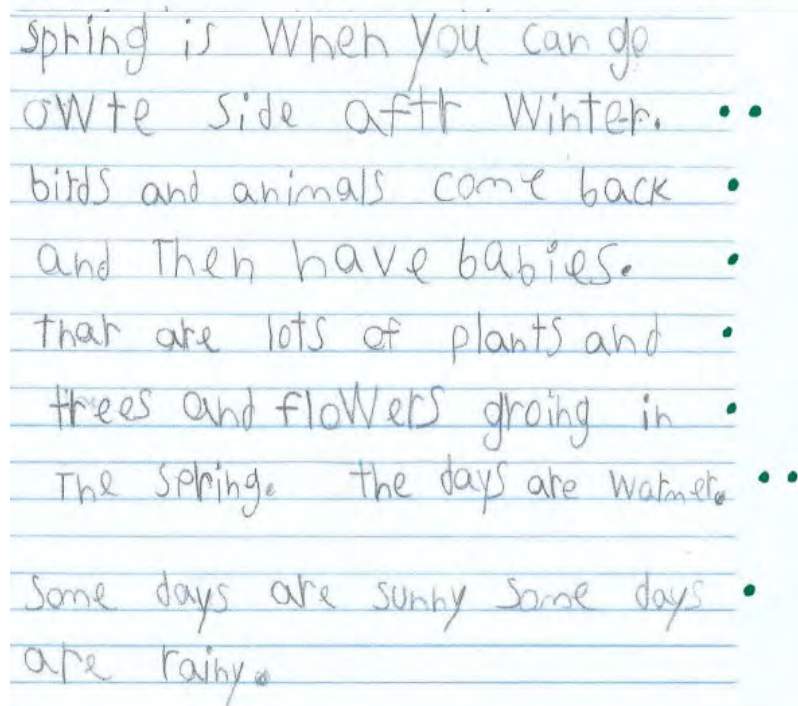 spring is When You can go
owte side aftr Winter.
birds and animals come back
and Then have babies.
thar are lots of plants and
trees and floWers groing in
The spring. the days are warmer.
Some days are sunny Some days
are rainy.